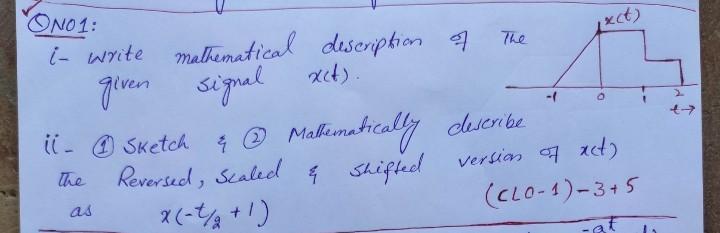 QNO1:
x(t)
i- write mathematical description of The
given signal x(t).
-1 0 1 2
t→
ii- ① Sketch & ② Mathematically describe
The Reversed, Scaled & Shifted version of x(t)
as x(-t/2 + 1) (CLO-1)-3+5
-at